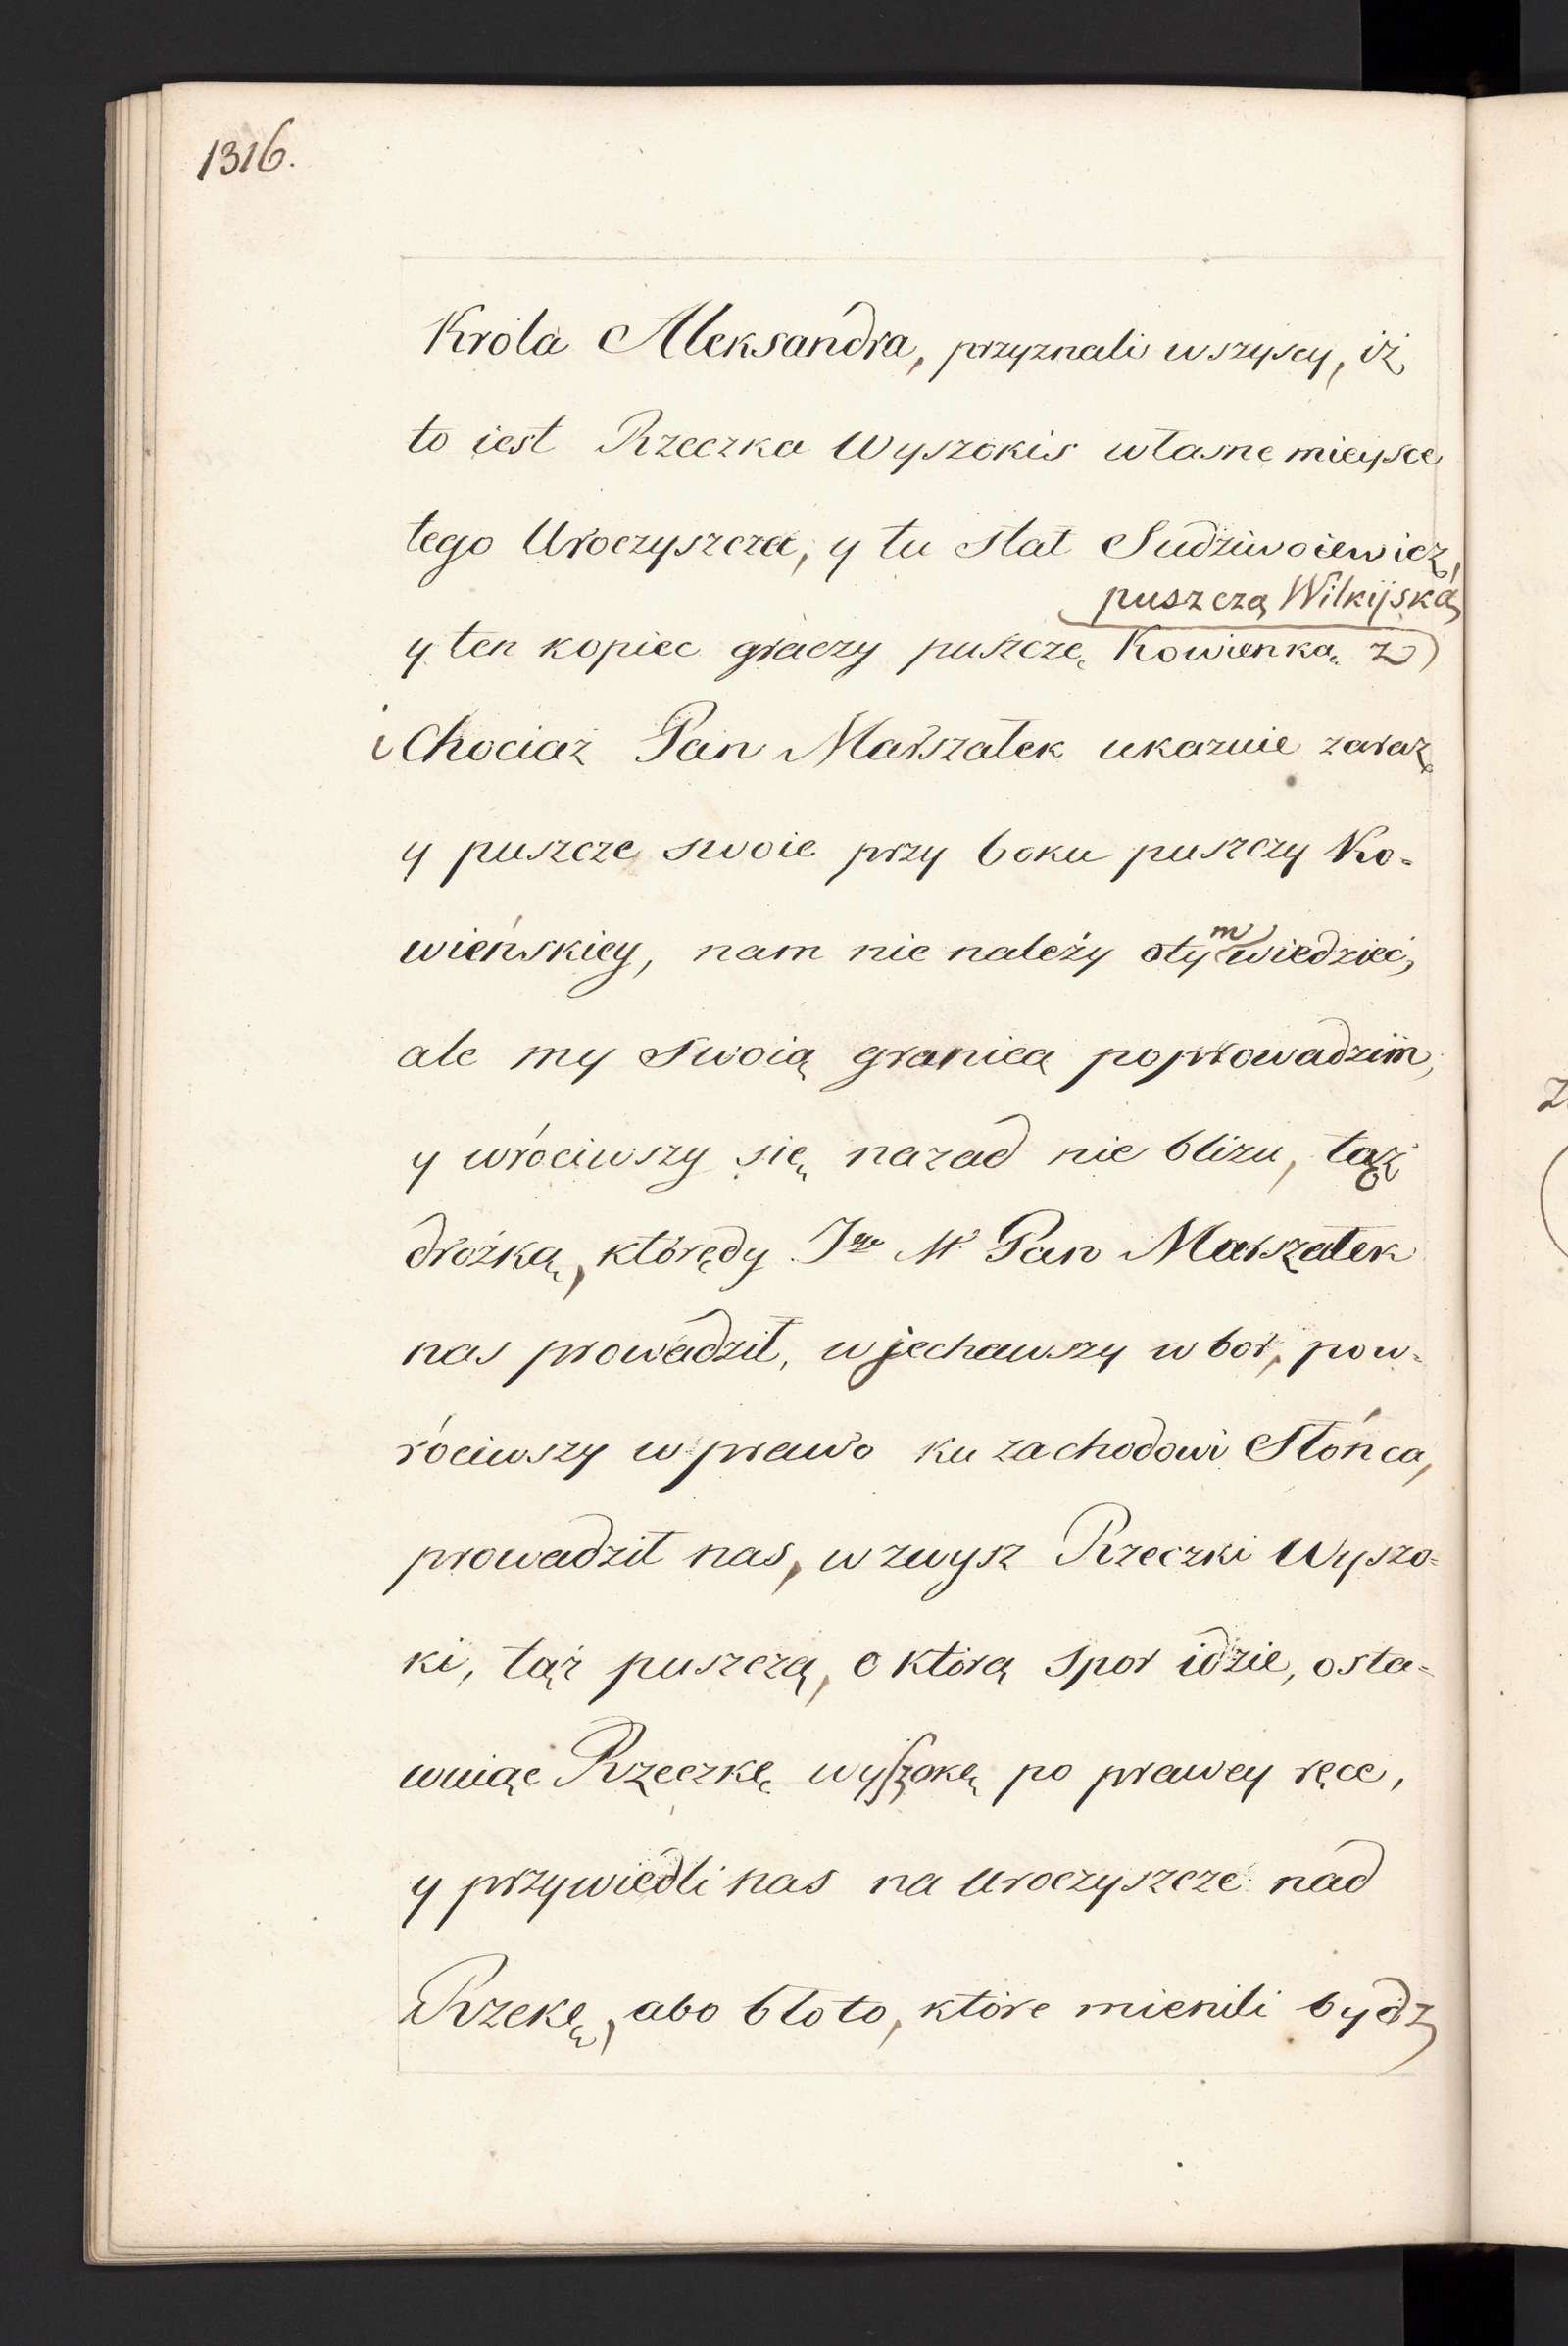 1316.
Krola Aleksandra, przyznali wszyscy, iż
to iest Rzeczka Wyszokis własne mieysce
tego Uroczyszcza, y tu stał Sudziwoiewicz,
puszczą Wilkijską
y ten kopiec graczy puszczę Kowienką z
i Chociaż Pan Marszałek ukazuie zaraz
y puszcze swoie przy boku puszczy Ko-
wieńskiey, nam nie należy o tym wiedzieć,
ale my swoią granicą poprowadzim,
y wróciwszy się nazad nie blizu, tąż
drożką, którędy Je° M° Pan Marszałek
nas prowadził, wjechawszy w bor, pow-
róciwszy w prawo ku zachodowi Słońca,
prowadził nas, w zwysz Rzeczki Wyszo-
ki, tąż puszczą, o którą spor idzie, osta-
wuiąc Rzeczkę wyszokę po prawey ręce,
y przywiedli nas na uroczyszcze nad
Rzekę, abo błoto, które mienili bydz